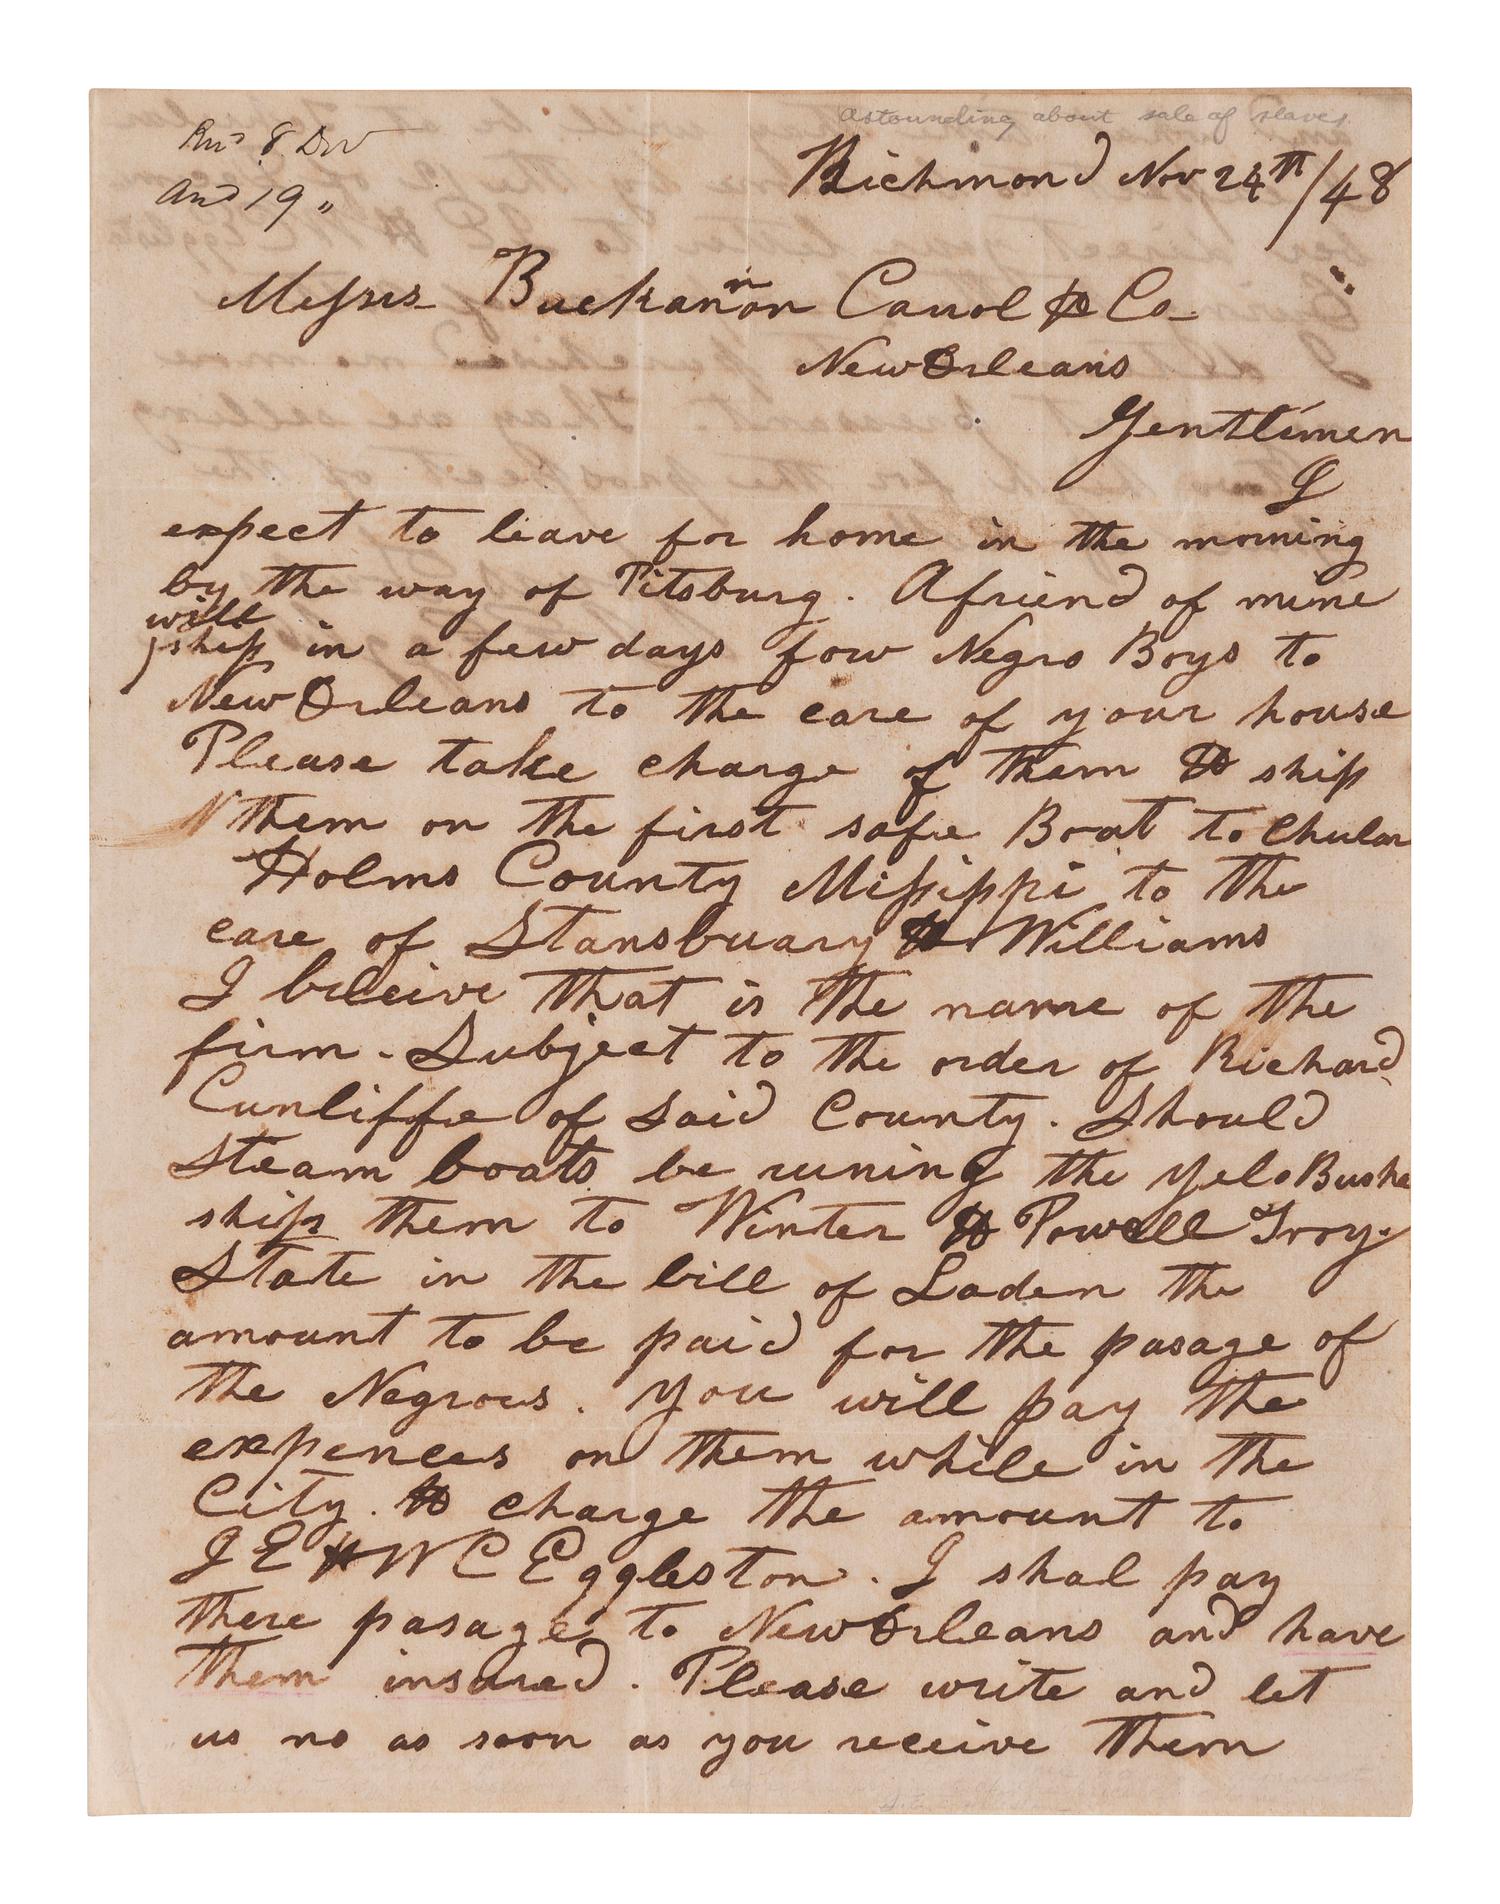 astounding about sale of slaves.
Richmond Nov 24th/48
And 19 "
Messrs Buckannon Carrol & Co
New Orleans
Gentlemen
I
expect to leave for home in the morning
by the way of Pitsburg. A friend of mine
will
ship in a few days fow Negro Boys to
New Orleans to the care of your house
Please take charge of them & ship
them on the first safe Boat to Chular
Holms County Missisippi to the
care of Stansbuary & Williams
I beleive that is the name of the
firm. Subject to the order of Richard
Cunliffe of said County. Should
steam boats be runing the YeloBusha
ship them to Winter & Powell Troy.
State in the bill of Laden the
amount to be paid for the pasage of
the Negrous. You will pay the
expences on them while in the
City. & charge the amount to
J E & W C Eggleston. I shal pay
there pasage to New Orleans and have
them insured. Please write and let
us no as soon as you receive them